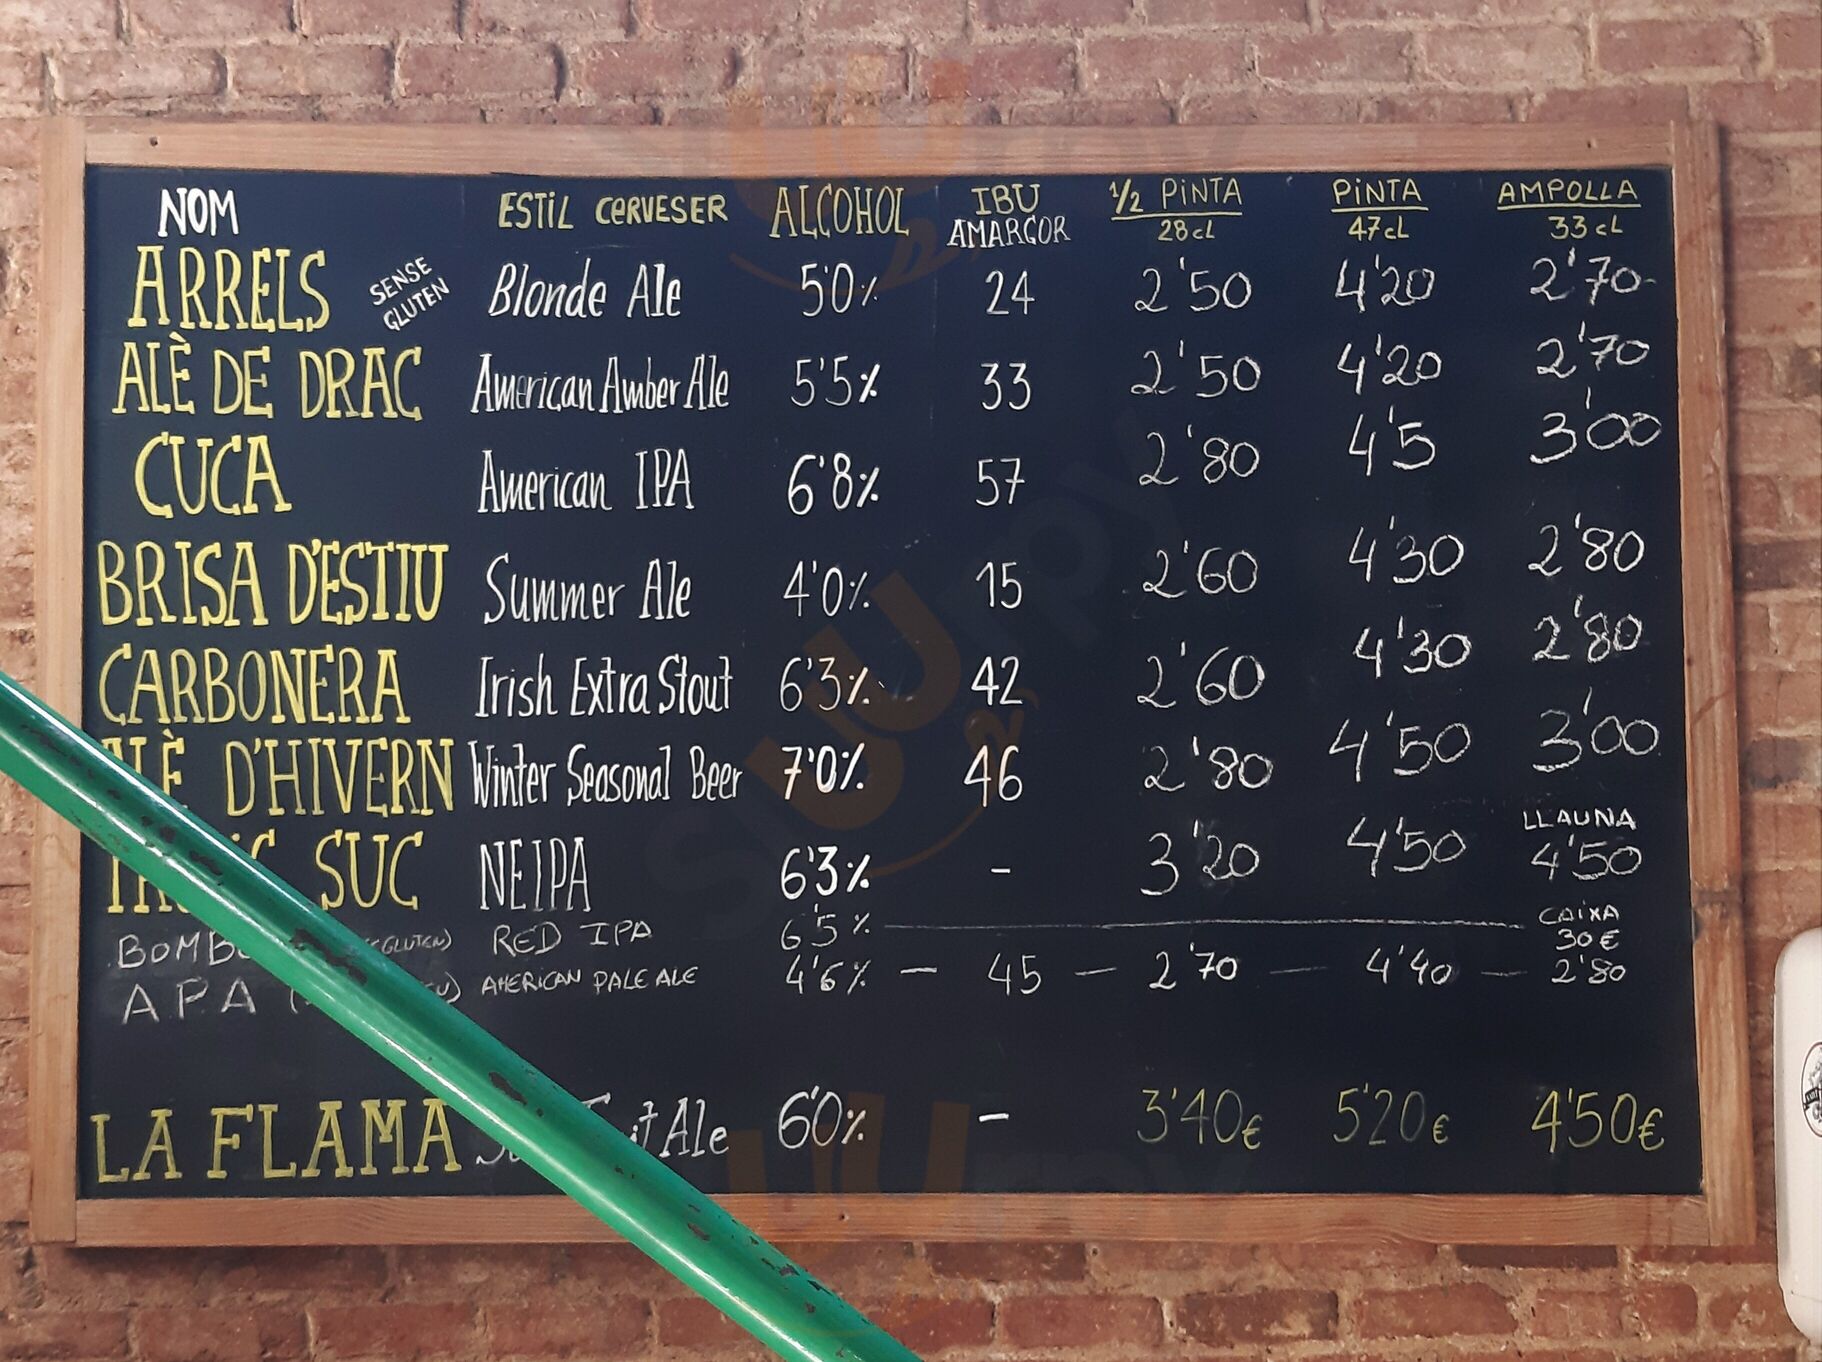 NOM ESTIL CERVESER ALCOHOL IBU AMARGOR 1/2 PINTA 28cL PINTA 47cL AMPOLLA 33cL
ARRELS SENSE GLUTEN Blonde Ale 5'0% 24 2'50 4'20 2'70
ALÈ DE DRAC American Amber Ale 5'5% 33 2'50 4'20 2'70
CUCA American IPA 6'8% 57 2'80 4'5 3'00
BRISA D'ESTIU Summer Ale 4'0% 15 2'60 4'30 2'80
CARBONERA Irish Extra Stout 6'3% 42 2'60 4'30 2'80
ALÈ D'HIVERN Winter Seasonal Beer 7'0% 46 2'80 4'50 3'00
SUC NEIPA 6'3% - 3'20 4'50 LLAUNA 4'50
RED IPA 6'5% CAIXA 30€
APA AMERICAN PALE ALE 4'6% — 45 — 2'70 — 4'40 — 2'80
LA FLAMA Ale 6'0% - 3'40€ 5'20€ 4'50€